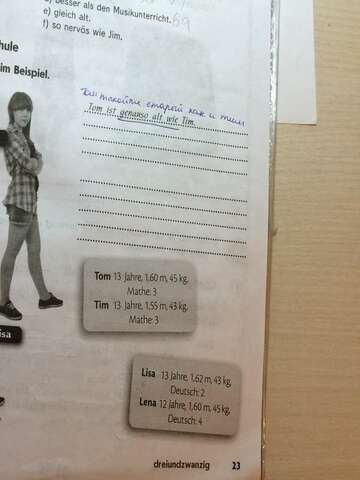 besser als den Musikunterricht. 69
e) gleich alt.
f) so nervös wie Jim.
hule
im Beispiel.
Том такойже старый как и тим
Tom ist genauso alt wie Tim.
Tom 13 Jahre, 1,60 m, 45 kg,
Mathe: 3
Tim 13 Jahre, 1,55 m, 43 kg,
Mathe: 3
isa
Lisa 13 Jahre, 1,62 m, 43 kg,
Deutsch: 2
Lena 12 Jahre, 1,60 m, 45 kg,
Deutsch: 4
dreiundzwanzig 23